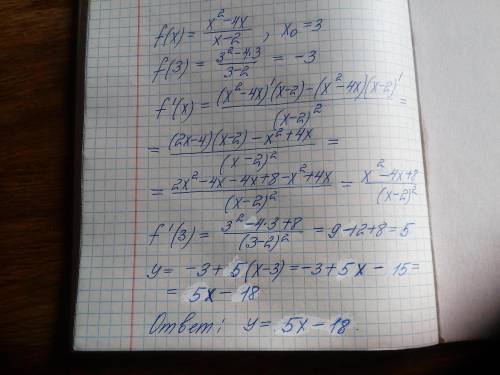 f(x) = (x² - 4x)/(x - 2) , x₀ = 3
f(3) = (3² - 4·3)/(3 - 2) = -3
f'(x) = ((x² - 4x)'(x - 2) - (x² - 4x)(x - 2)')/(x - 2)² =
= ((2x - 4)(x - 2) - x² + 4x)/(x - 2)² =
= (2x² - 4x - 4x + 8 - x² + 4x)/(x - 2)² = (x² - 4x + 8)/(x - 2)²
f'(3) = (3² - 4·3 + 8)/(3 - 2)² = 9 - 12 + 8 = 5
y = -3 + 5(x - 3) = -3 + 5x - 15 =
= 5x - 18
Ответ: y = 5x - 18.